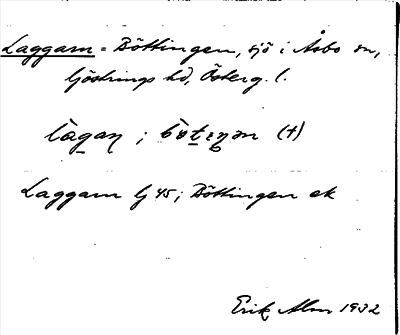 Laggarn = Böttingen, sjö i Åsbo sn,
Göstrings hd, Österg. l.
lagaɳ ; bøtɩŋən (+)
Laggarn Gj 45; Böttingen ek
Erik Alm 1932